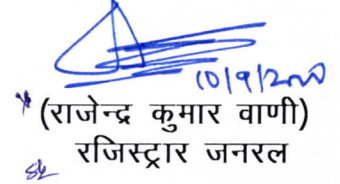 10/9/2020
(राजेन्द्र कुमार वाणी)
रजिस्ट्रार जनरल